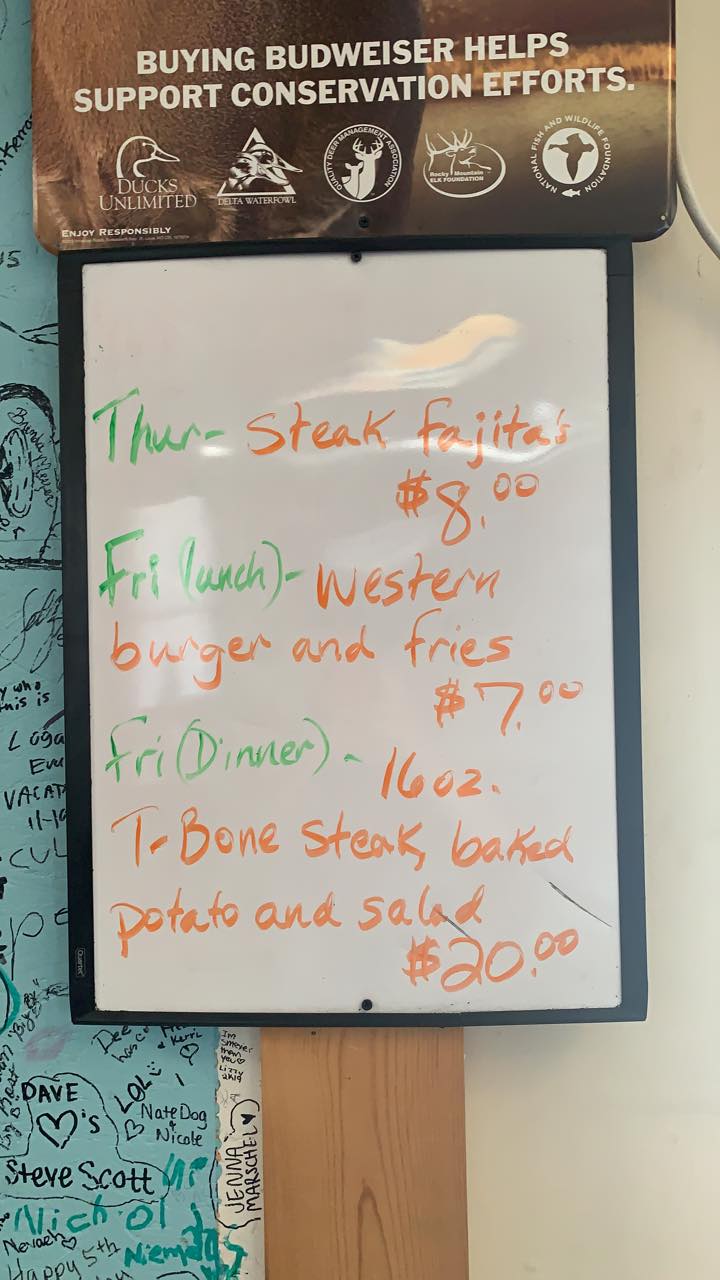 BUYING BUDWEISER HELPS
SUPPORT CONSERVATION EFFORTS.
DUCKS
UNLIMITED
DELTA WATERFOWL
QUALITY DEER MANAGEMENT ASSOCIATION
Rocky Mountain
ELK FOUNDATION
NATIONAL FISH AND WILDLIFE FOUNDATION
ENJOY RESPONSIBLY
Thur- Steak fajita's
$8.00
Fri (lunch)- Western
burger and fries
$7.00
Fri (Dinner) - 16oz.
T-Bone Steak, baked
potato and salad
$20.00
Quartet
Brenda Meyer
this is
DAVE
♡'s
Steve Scott
LOL
Nate Dog
&
Nicole
I'm
smarter
than
you
Lizzy
JENNA
MARSCHEL
Nevaeh
Happy 5th